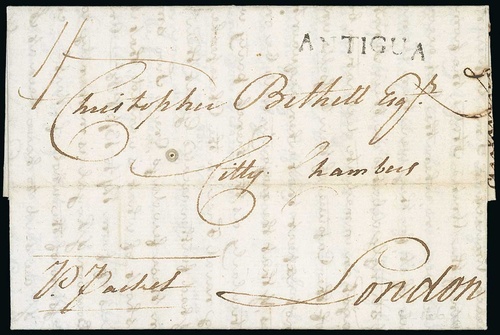 ANTIGUA
Christopher Bethell Esqr.
Citty Chambers
London
P. Packet